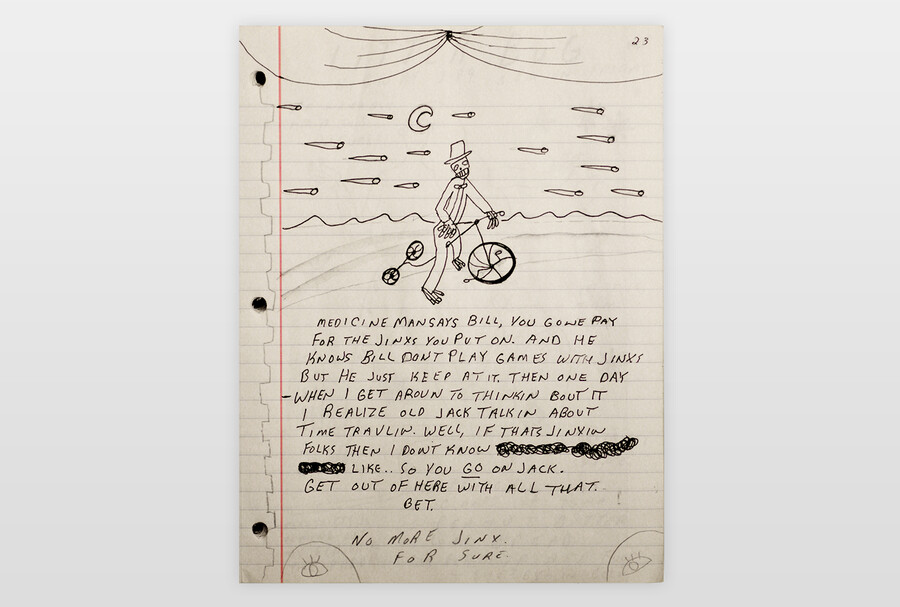 23
MEDICINE MAN SAYS BILL, YOU GONE PAY
FOR THE JINXS YOU PUT ON. AND HE
KNOWS BILL DONT PLAY GAMES WITH JINXS
BUT HE JUST KEEP AT IT. THEN ONE DAY
-WHEN I GET AROUN TO THINKIN BOUT IT
I REALIZE OLD JACK TALKIN ABOUT
TIME TRAVLIN. WELL, IF THATS JINXIN
FOLKS THEN I DONT KNOW
LIKE.. SO YOU GO ON JACK.
GET OUT OF HERE WITH ALL THAT.
GET.
NO MORE JINX.
FOR SURE.